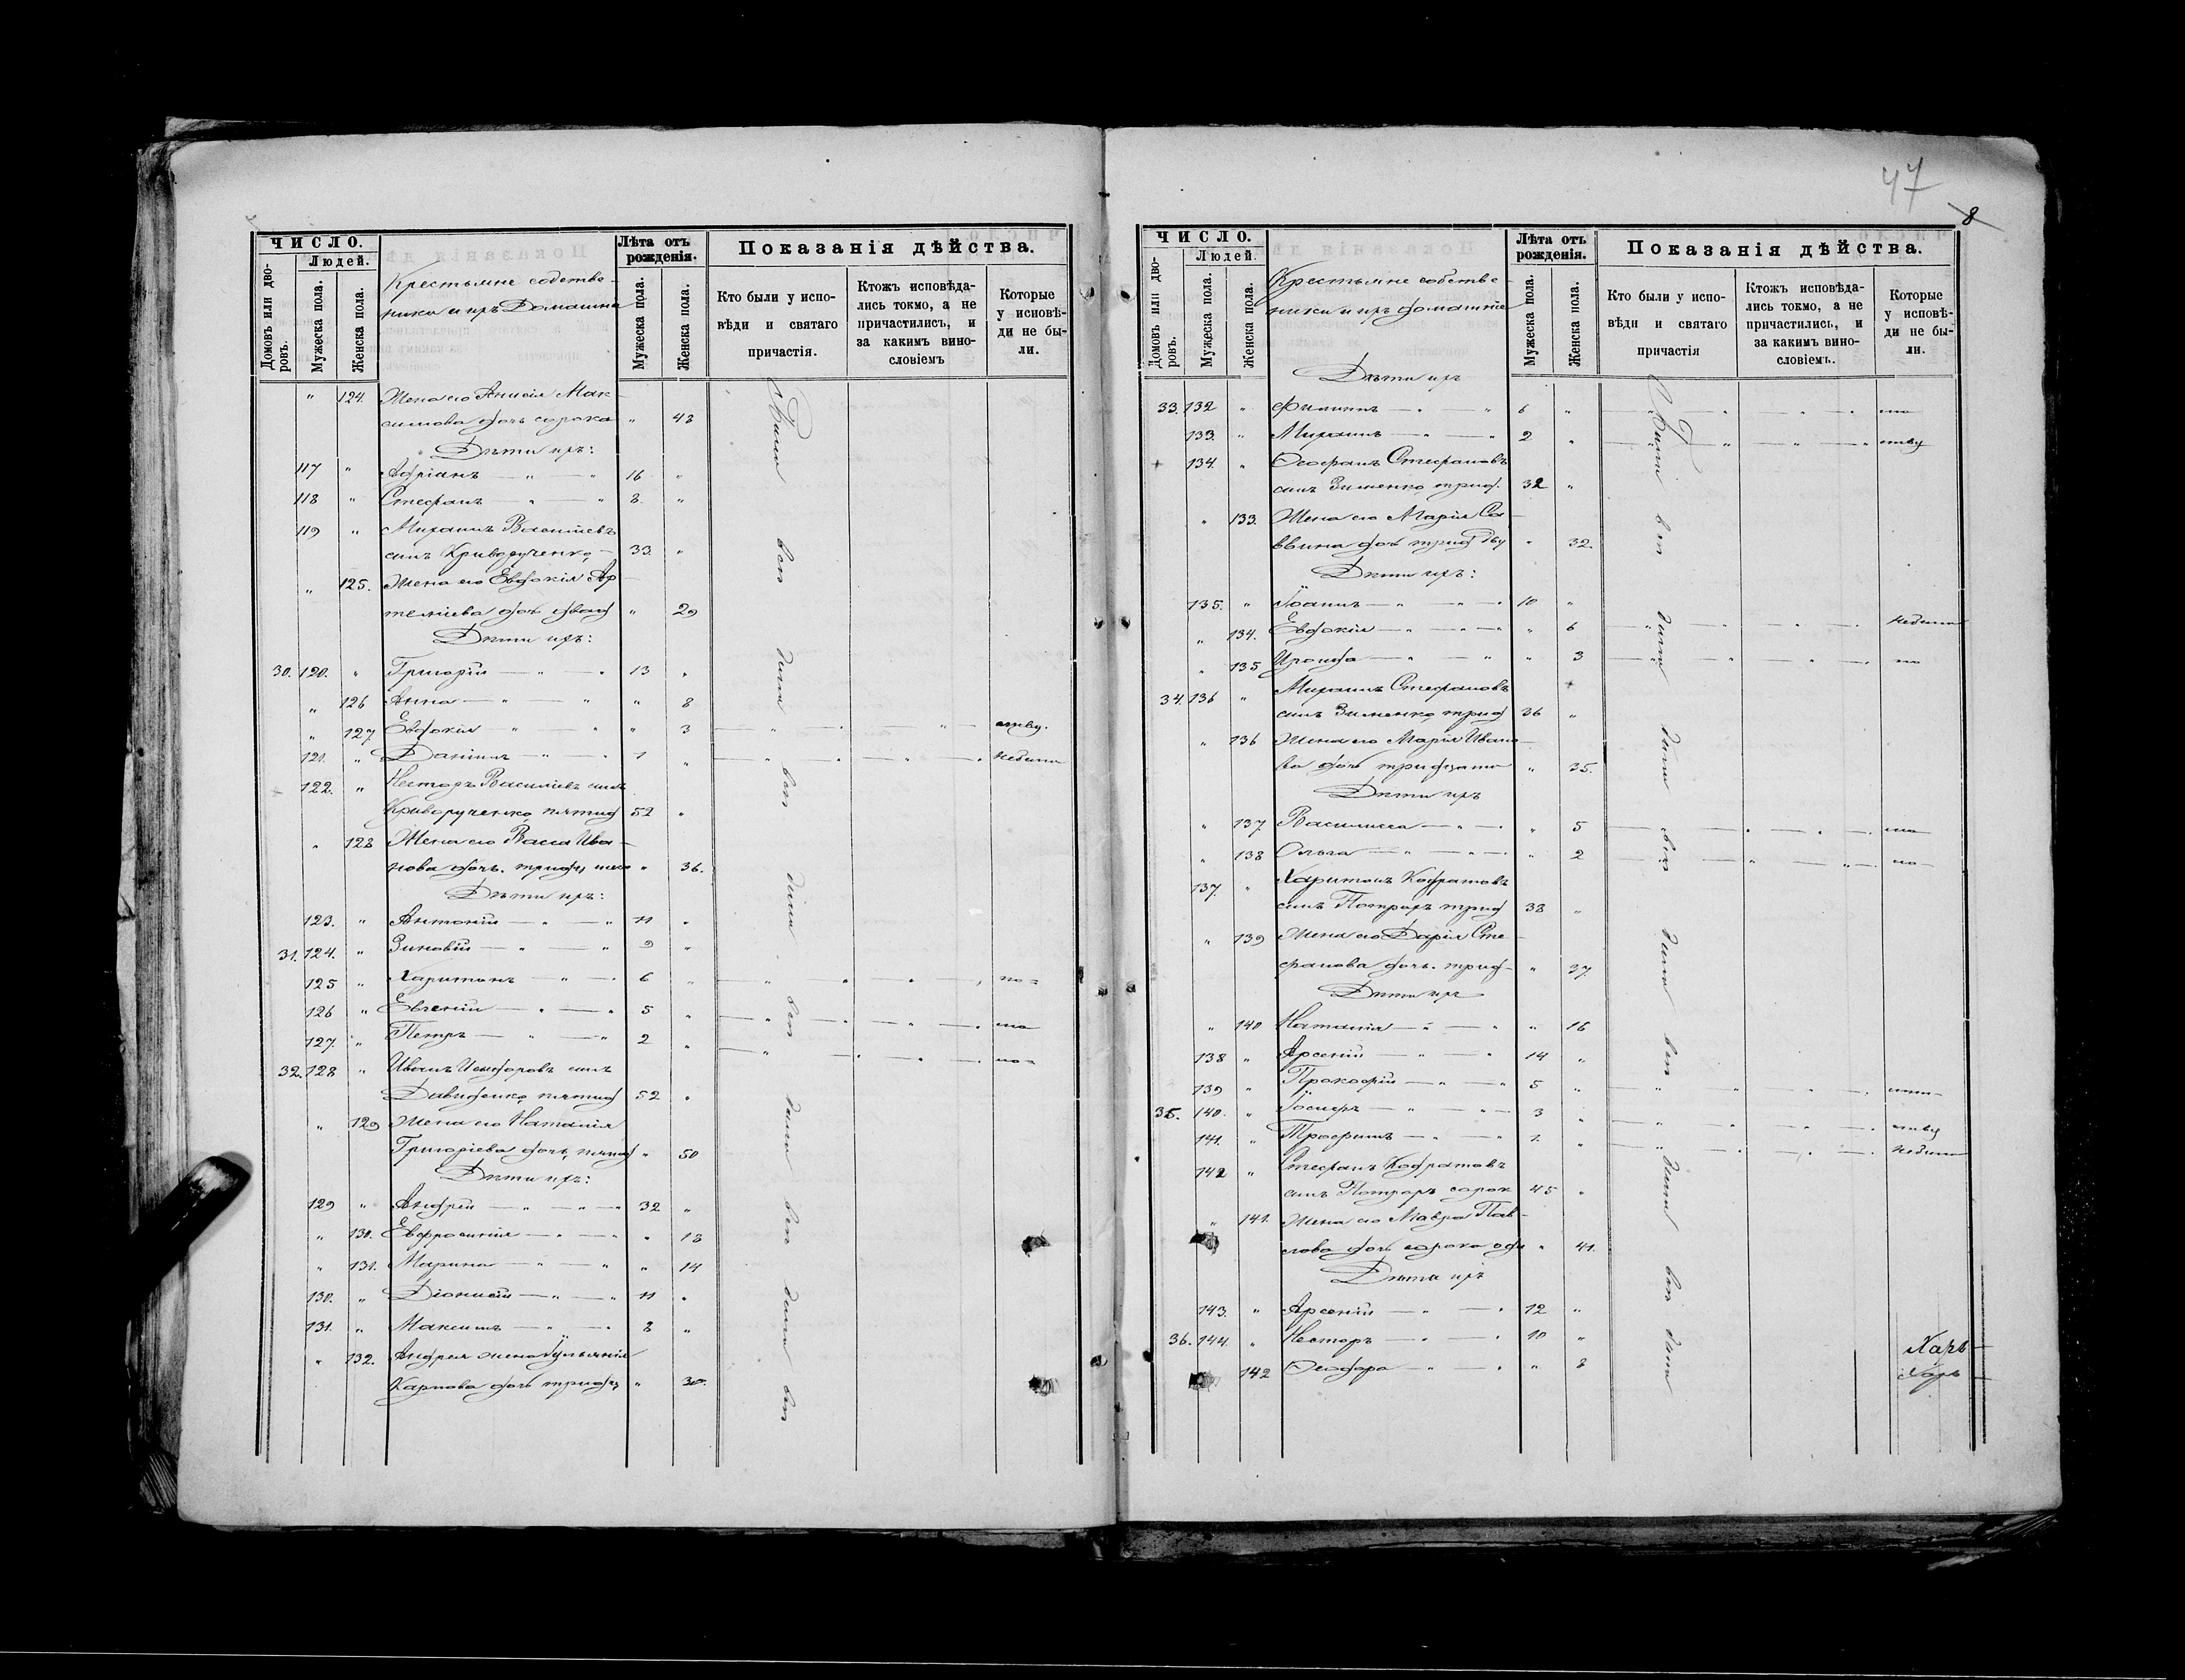 ЧИСЛО.
Людей.
Домовъ или дворовъ.
Мужеска пола.
Женска пола.
Крестьяне собстве-
ники и ихъ Домашние
Лѣта отъ рожденія.
Мужеска пола.
Женска пола.
Показанія дѣйства.
Кто были у испо-
вѣди и святаго
причастія.
Ктожъ исповѣда-
лись токмо, а не
причастились, и
за какимъ вино-
словіемъ
Которые
у исповѣ-
ди не бы-
ли.
" 124. Жена его Анисія Мак-
симова дочь сорока " 48
Дѣти ихъ:
117 " Адріанъ — " — " 16 "
118 " Стефанъ — " — " 8 "
119 " Михаилъ Васильевъ
сынъ Криворученко, — 33. "
" 125. Жена его Евдокія Ар-
темиева дочь двад " 29
Дѣти ихъ:
30. 120. " Григорій — " — " 13 "
" 126 Анна — " — " " 8
" 127. Евдокія — " — " " 3
121. " Даніилъ — " — " 1 "
122. " Несторъ Василіевъ сынъ
Криворученко, пятид 52 "
" 128 Жена его Васса Ива-
нова дочь. тридц. шес " 36.
Дѣти ихъ:
123. " Антоній — " — " 11 "
31. 124. " Зиновій — " — " 9 "
125 " Харитонъ — " — " 6 "
126 " Евгеній — " — " 5 "
127. " Петръ — " — " 2 "
32. 128 " Иванъ Исидоровъ сынъ
Давиденко, пятид 52 "
" 129 Жена его Наталія
Григоріева дочь, пятид " 50
Дѣти ихъ:
129 " Андрей — " — " 32 "
" 130. Евфросинія — " — " " 18
" 131. Марина — " — " " 14
130. " Діонисій — " — " 11 "
131. " Максимъ — " — " 8 "
" 132. Андрея жена Іуліянія
Карпова дочь тридц, " 30.
47
8
ЧИСЛО.
Людей.
Домовъ или дворовъ.
Мужеска пола.
Женска пола.
Крестьяне собстве-
ники и ихъ домашніе
Лѣта отъ рожденія.
Мужеска пола.
Женска пола.
Показанія дѣйства.
Кто были у испо-
вѣди и святаго
причастія
Ктожъ исповѣда-
лись токмо, а не
причастились, и
за какимъ вино-
словіемъ.
Которые
у исповѣ-
ди не бы-
ли.
Дѣти ихъ
33. 132 " Филиппъ — " — " 6 "
133. " Михаилъ — " — " 2 "
134. " Ѳеофанъ Стефановъ
сынъ Зименко, трид. 32 "
" 133. Жена его Марія Са-
ввина дочь трид дву " 32.
Дѣти ихъ:
135. " Іоаннъ — " — " 10 "
" 134. Евдокія — " — " " 6
" 135 Ироида — " — " " 3
34. 136 " Михаилъ Стефановъ
сынъ Зименко, трид 36 "
" 136 Жена его Марія Ивано-
ва дочь тридцати " 35.
Дѣти ихъ
" 137 Василисса — " — " " 5
" 138 Ольга — " — " " 2
137. " Харитонъ Кодратовъ
сынъ трид 38 "
" 139 Жена его Дарія Сте-
фанова дочь. трид- " 37.
Дѣти ихъ
" 140 Наталія — " — " " 16
138 " Арсеній — " — " 14 "
139 " Прокофій — " — " 5 "
35. 140. " Іосифъ — " — " 3 "
141. " Трофимъ — " — " 1. "
142 " Стефанъ Кодратовъ
сынъ сорок 45 "
" 141. Жена его Мавра Пав-
лова дочь сорока одн " 41.
Дѣти ихъ
143. " Арсеній — " — " 12 "
36. 144. " Несторъ — " — " 10 "
142 Ѳеодора — " — " " 8